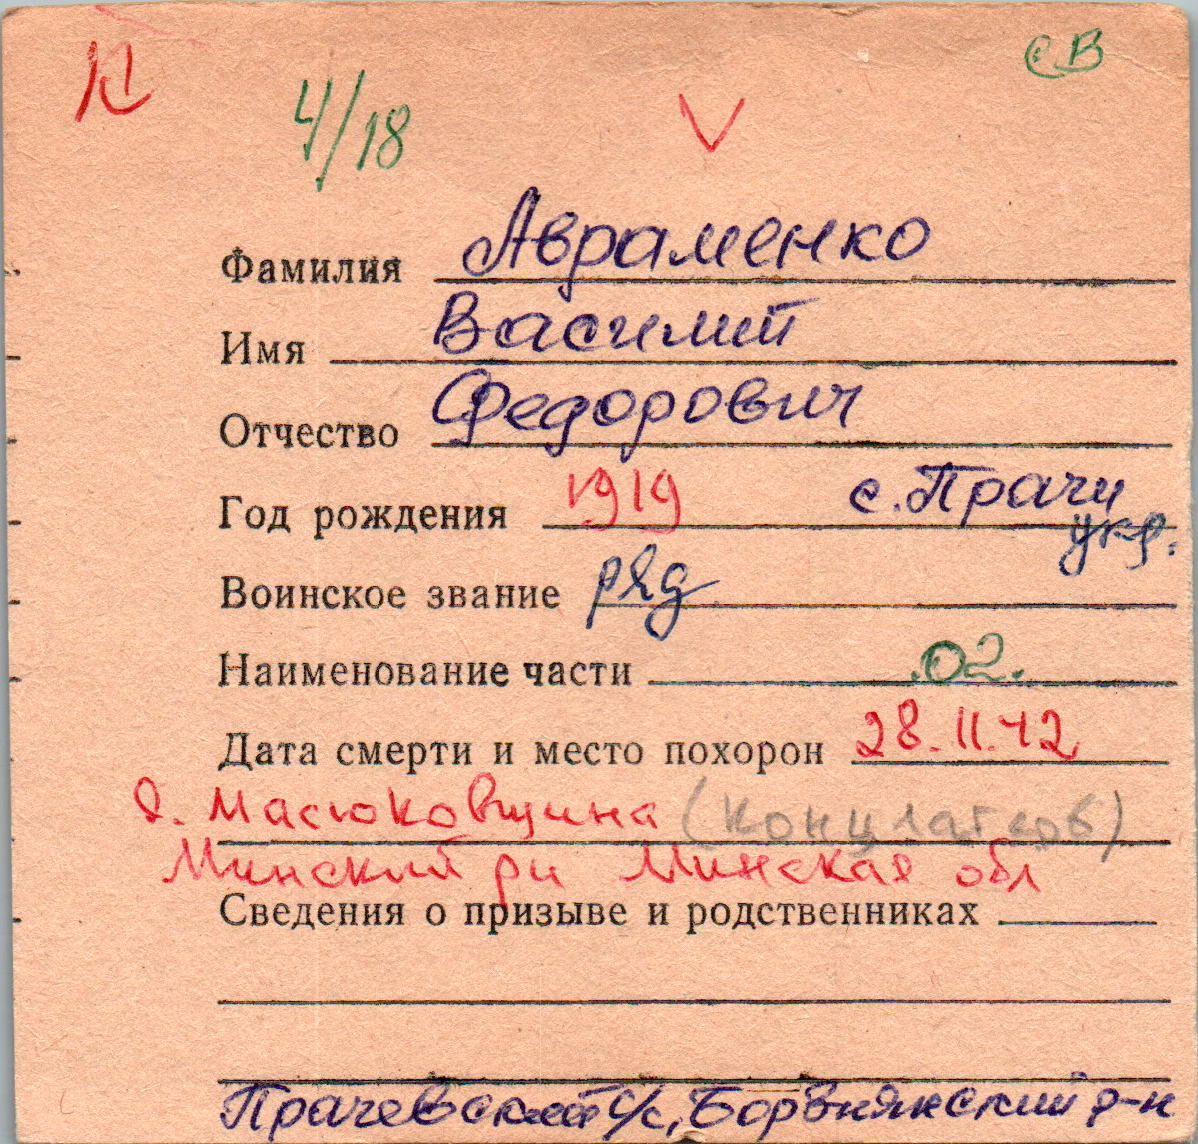 П
4/18
V
СВ
Фамилия Авраменко
Имя Василий
Отчество Федорович
Год рождения 1919 с. Прачи
укр.
Воинское звание ряд
Наименование части .02.
Дата смерти и место похорон 28.11.42
д. Масюковщина (концлагерь)
Минский рн Минская обл
Сведения о призыве и родственниках
Прачевский с/с, Борзнянский р-н